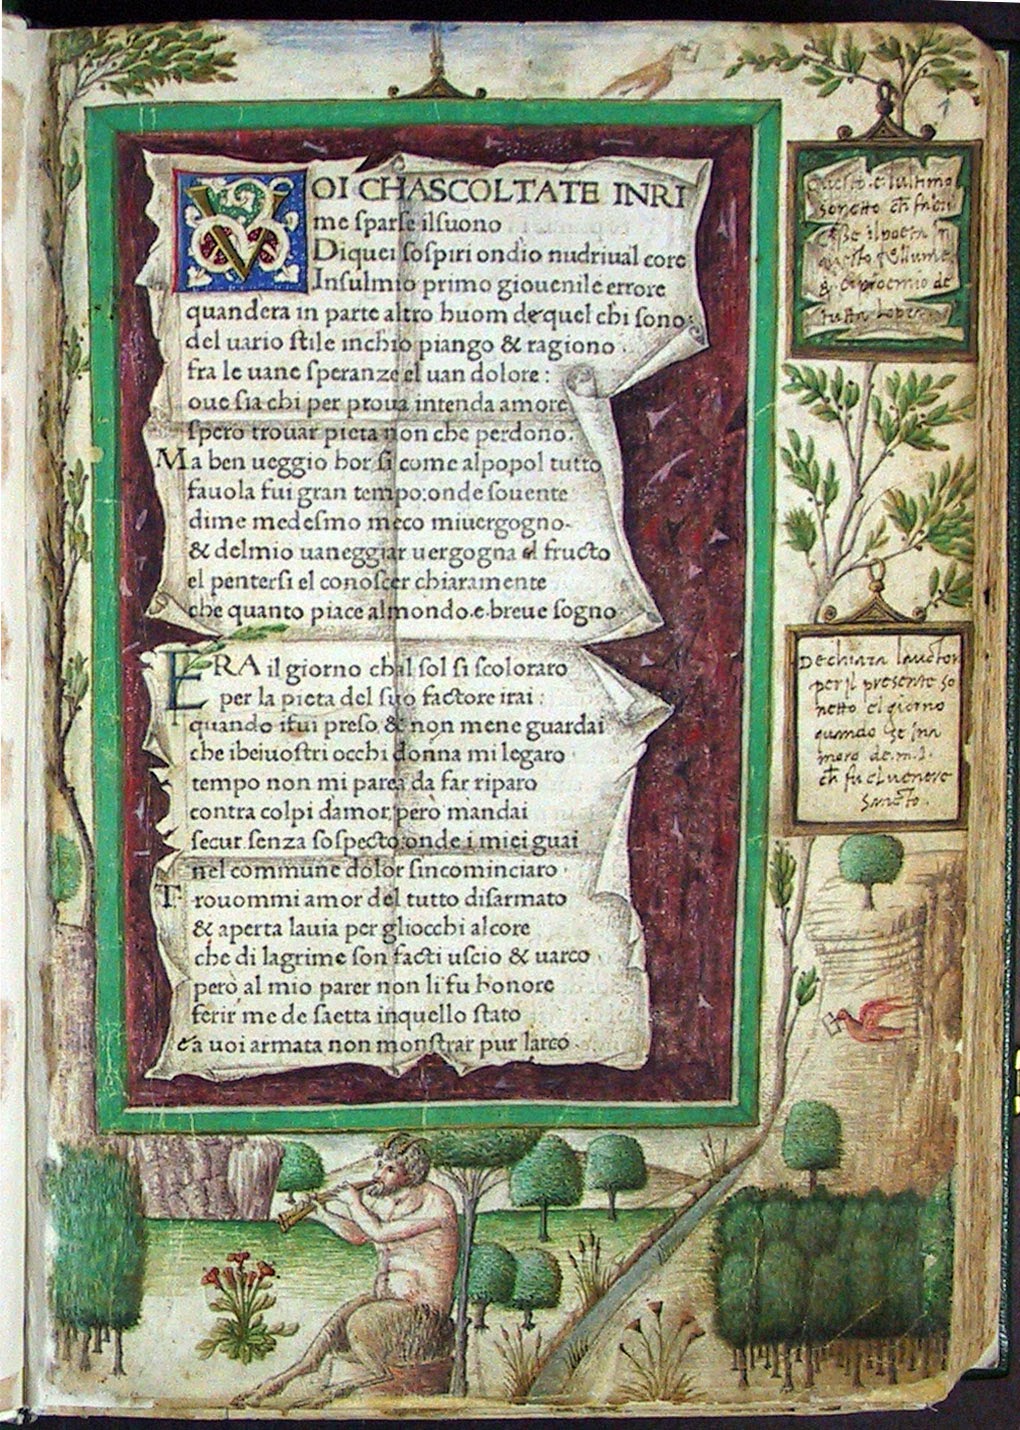 VOI CHASCOLTATE INRI
me sparse ilsuono
Diquei sospiri ondio nudriual core
Insulmio primo giouenile errore
quandera in parte altro huom dequel chi sono:
del uario stile inchio piango & ragiono
fra le uane speranze el uan dolore:
oue sia chi per proua intenda amore
spero trouar pieta non che perdono.
Ma ben ueggio hor si come alpopol tutto
fauola fui gran tempo:onde souente
dime medesmo meco miuergogno.
& delmio uaneggiar uergogna el fructo
el pentersi el conoscer chiaramente
che quanto piace almondo.e.breue sogno
ERA il giorno chal sol si scoloraro
per la pieta del suo factore irai:
quando ifui preso, & non mene guardai
che ibeiuostri occhi donna mi legaro
tempo non mi parea da far riparo
contra colpi damor, però mandai
secur senza sospecto:onde i miei guai
nel commune dolor sincominciaro.
Trouommi amor del tutto disarmato
& aperta lauia per gliocchi alcore
che di lagrime son facti uscio & uarco
però al mio parer non li fu honore
ferir me de saetta inquello stato
& a voi armata non monstrar pur larco.
Questo.e.lultimo
sonetto
il poeta in
questo uollume
& e proemio de
tutta lopera
Dechiara lauctor
per il presente so
netto el giorno
quando se ina
moro de.m.l.
ch fu el uenere
Sancto.